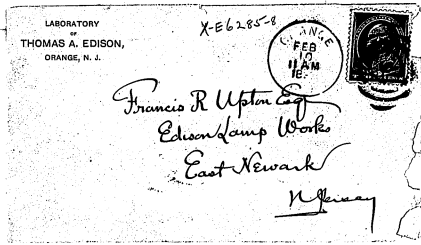 LABORATORY
OF
THOMAS A. EDISON,
ORANGE, N. J.
X-E6285-8
ORANGE
FEB
10
11 AM
Francis R Upton Esq
Edison Lamp Works
East Newark
N Jersey